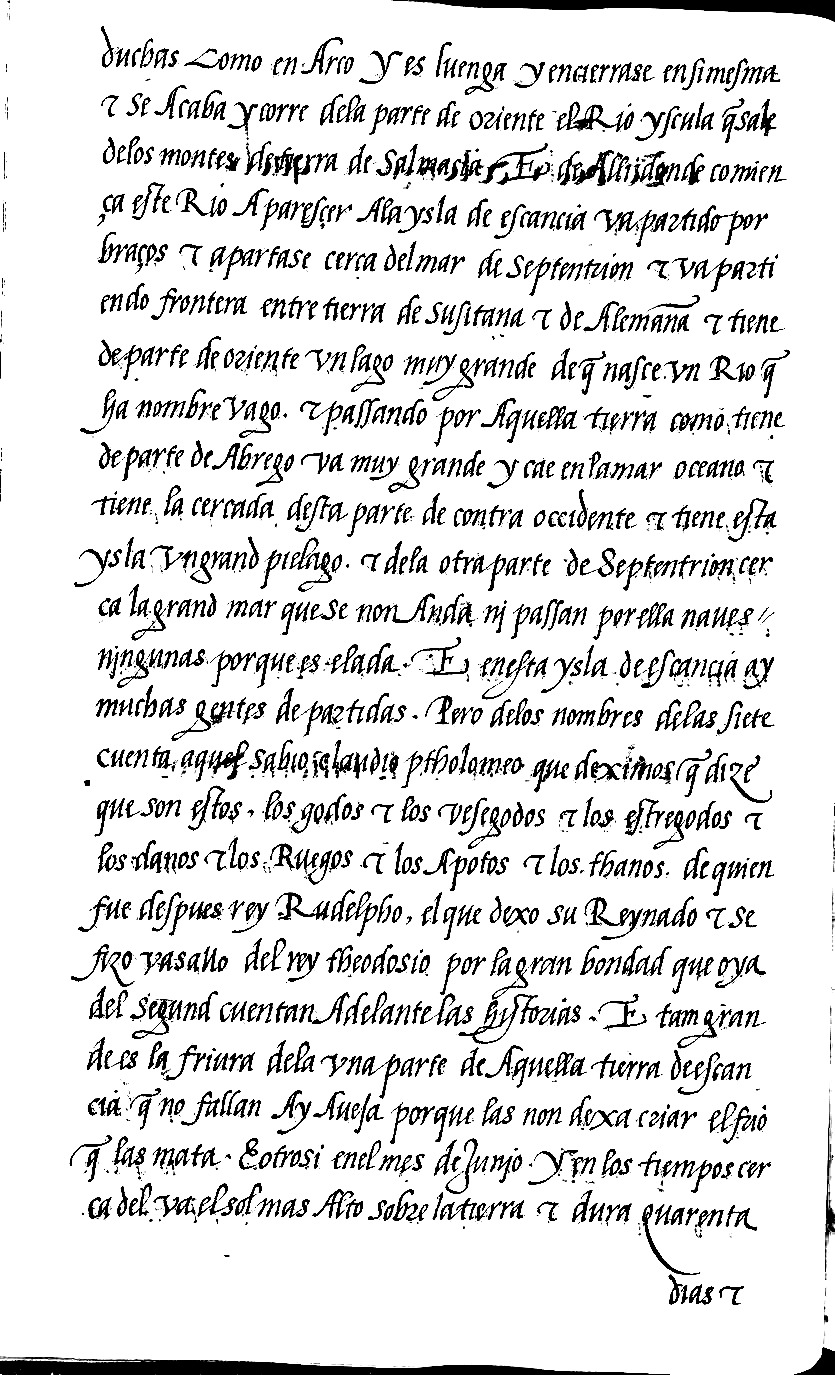 duchas como en Arco y es luenga y encierrase ensimesma
⁊ se Acaba y corre dela parte de oriente el Rio yscula q̃ sale
delos montes de tierra de Salmacia. E de Allidonde comien
ça este Rio A paresçer Ala ysla de escancia va partido por
braços ⁊ apartase cerca del mar de Septentrion ⁊ va parti
endo frontera entre tierra de Susitana ⁊ de Alemaña ⁊ tiene
de parte de oriente vn lago muy grande de q̃ nasce vn Rio q̃
ha nombre vago. ⁊ passando por Aquella tierra como tiene
de parte de Abrego va muy grande y cae en la mar oceano ⁊
tiene la cercada desta parte de contra occidente ⁊ tiene esta
ysla vn grand pielago. ⁊ dela otra parte de Septentrion cer
ca la grand mar que se non Anda nj passan por ella naues
njngunas porque es elada. E en esta ysla de escancia ay
muchas gentes de partidas. Pero delos nombres delas siete
cuenta aquel sabio claudio ptholomeo que deximos q̃ dize
que son estos. los godos ⁊ los vesegodos ⁊ los estregodos ⁊
los danos ⁊ los Ruegos ⁊ los Apotos ⁊ los thanos. de quien
fue despues rey Rudelpho, el que dexo su Reynado ⁊ se
fizo vasallo del rey theodosio por la gran bondad que oya
del segund cuentan Adelante las historias. E tam gran
de es la friura dela vna parte de Aquella tierra de escan
cia q̃ no fallan Ay Aueja porque las non dexa criar el frio
q̃ las mata. E otrosi en el mes de Junjo y en los tiempos cer
ca del va el sol mas Alto sobre la tierra ⁊ dura quarenta
dias ⁊